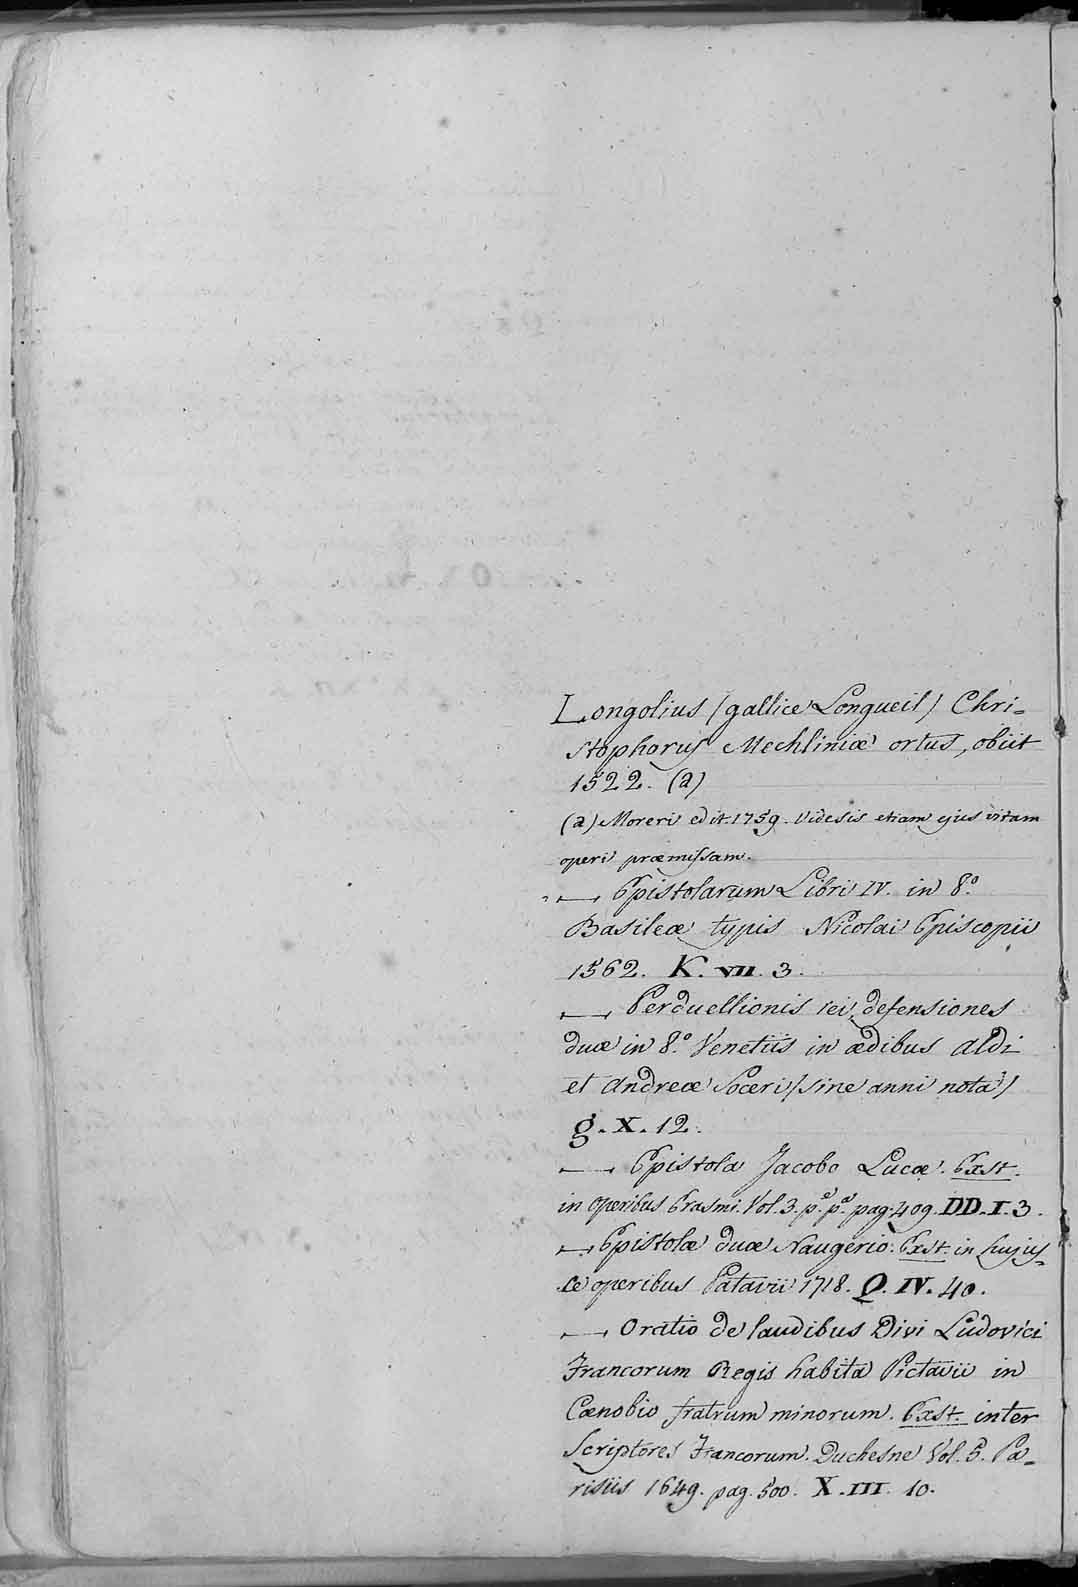 Longolius (gallice Longueil) Chri=
stophorus Mechliniæ ortus, obiit
1522. (a)
(a) Moreri edit. 1759. Videsis etiam ejus vitam
operi præmissam.
⟼ Epistolarum Libri IV. in 8.º
Basileæ typis Nicolai Episcopii
1562. K. VII. 3.
⟼ Perduellionis rei defensiones
duæ in 8.º Venetiis in ædibus Aldi
et Andreæ Soceri (sine anni nota)
g. X. 12.
⟼ Epistola Jacobo Lucæ. Exst.
in operibus Erasmi. Vol. 3. p.e p.a pag. 409. DD. I. 3.
⟼ Epistolæ duæ Naugerio. Exst. in hujus=
ce operibus Patavii 1718. Q. IV. 40.
⟼ Oratio de laudibus Divi Ludovici
Francorum Regis habita Pictavii in
Cœnobio fratrum minorum. Exst. inter
Scriptores Francorum. Duchesne Vol. 5. Pa=
risiis 1649. pag. 500. X. III. 10.